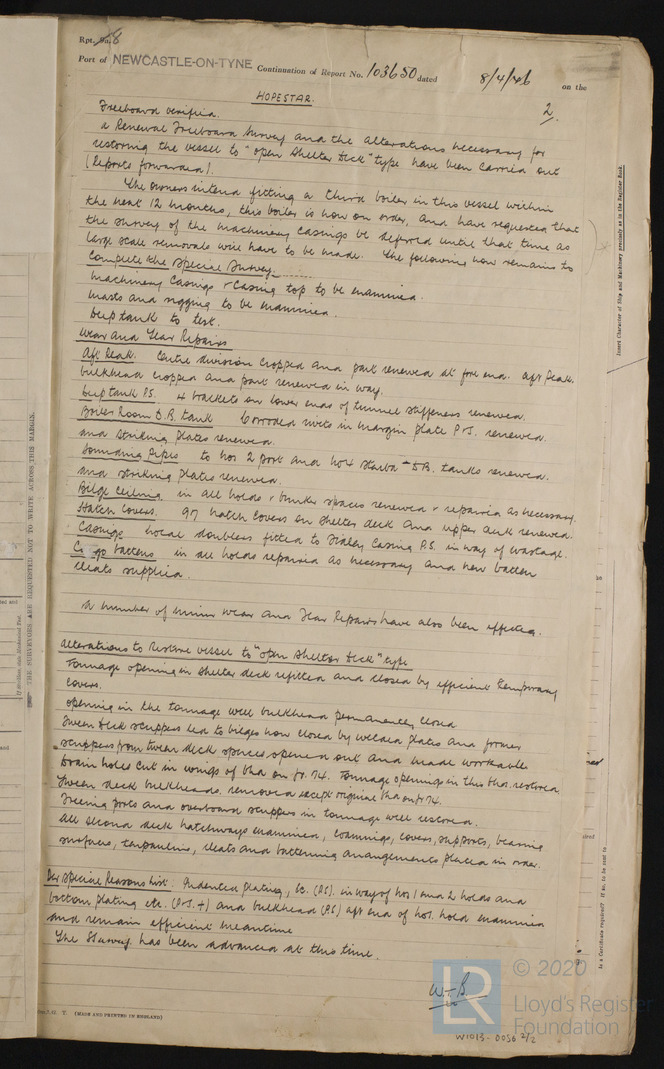 Rpt. No. 8
Port of NEWCASTLE-ON-TYNE Continuation of Report No. 103650 dated 8/4/46 on the
HOPESTAR.
2.
Freeboard verified.
A Renewal Freeboard Survey and the alterations necessary for
restoring the vessel to "open Shelter Deck" type have been carried out
(Reports forwarded).
The owners intend fitting a third boiler in this vessel within
the next 12 months, this boiler is now on order, and have requested that
the survey of the machinery casings be deferred until that time as
large scale removals will have to be made. The following now remains to
complete the Special Survey.
Machinery casings & casing top to be examined.
Masts and rigging to be examined.
Deep tank to test.
Wear and Tear Repairs
Aft Peak. Centre division cropped and part renewed at fore end. Aft Peak
bulkhead cropped and part renewed in way.
Deep tank P.S. 4 brackets on lower ends of tunnel stiffeners renewed.
Boiler Room D.B. tank 6 corroded rivets in margin plate P&S. renewed
and striking plates renewed.
Sounding Pipes to No 2 port and No 4 starbd D.B. tanks renewed
and striking plates renewed.
Bilge ceiling in all holds & bunker spaces renewed & repaired as necessary.
Hatch Covers. 97 hatch covers on shelter deck and upper deck renewed.
Casings local doublers fitted to Fidley Casing P.S. in way of wastage.
Cargo battens in all holds repaired as necessary and new batten
cleats supplied.
A number of minor wear and tear repairs have also been effected.
Alterations to restore vessel to "open Shelter Deck" type
Tonnage opening in shelter deck refitted and closed by efficient temporary
covers.
Opening in the tonnage well bulkhead permanently closed
Tween deck scuppers led to bilges now closed by welded plates and former
scuppers from tween deck spaces opened out and made workable
Drain holes cut in wings of bhd on fr. 74. Tonnage openings in this bhd. restored
Tween deck bulkheads removed except original bhd on fr 74.
Freeing ports and overboard scuppers in tonnage well restored.
All second deck hatchways examined, coamings, covers, supports, bearing
surfaces, tarpaulins, cleats and battening arrangements placed in order.
Per Special Reasons List: Indented plating, &c. (P.S.) in way of Nos 1 and 2 holds and
bottom plating etc. (P.S.+) and bulkhead (PS) aft end of No 1 hold examined
and remain efficient meantime
The Survey has been advanced at this time.
W.B.
(MADE AND PRINTED IN ENGLAND)
W1013-0056 2/2
THE SURVEYORS ARE REQUESTED NOT TO WRITE ACROSS THIS MARGIN.
Insert Character of Ship and Machinery precisely as in the Register Book
Is a Certificate required? If so, to be sent to
LR
© 2020
Lloyd's Register
Foundation